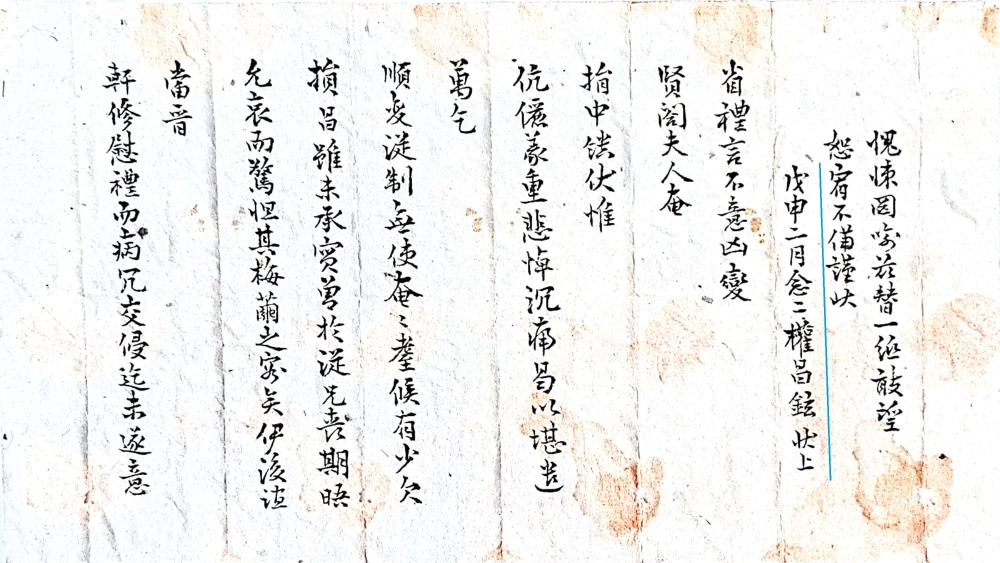 愧悚罔喻茲替一紙敢望
恕宥不備謹狀
戊申二月念二權昌鉉狀上
省禮言不意凶變
賢閤夫人奄
捐中饋伏惟
伉儷義重悲悼沉痛曷以堪遣
萬乞
順変從制無使奄〻耋候有少欠
損昌雖未承實曾於從兄喪期晤
允哀而驚怛其梅薾之容矣伊後誼
當晋
軒修慰禮而病冗交侵迄未遂意